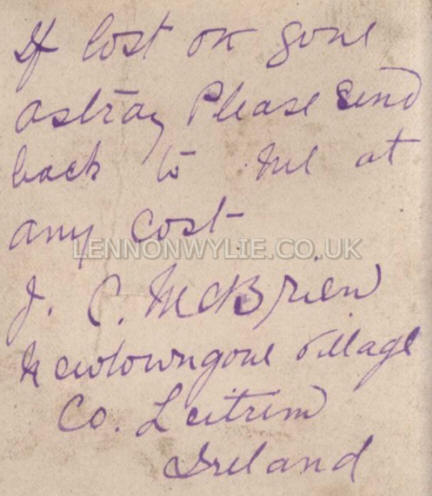 If lost or gone
astray Please Send
back to me at
any Cost
LENNONWYLIE.CO.UK
J. C. McBrien
Newtowngore Village
Co. Leitrim
Ireland